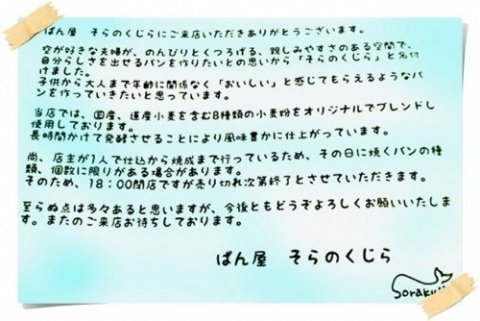 ぱん屋 そらのくじらにご来店いただきありがとうございます。
空が好きな夫婦が、のんびりとくつろげる、親しみやすさのある空間で、
自分らしさを出せるパンを作りたいとの思いから「そらのくじら」と名付
けました。
子供から大人まで年齢に関係なく「おいしい」と感じてもらえるようなパ
ンを作っていきたいと思っています。
当店では、国産、道産小麦を含む8種類の小麦粉をオリジナルでブレンドし
使用しております。
長時間かけて発酵させることにより風味豊かに仕上がっています。
尚、店主が1人で仕込から焼成まで行っているため、その日に焼くパンの種
類、個数に限りがある場合があります。
そのため、18：00閉店ですが売り切れ次第終了とさせていただきます。
至らぬ点は多々あると思いますが、今後ともどうぞよろしくお願いいたしま
す。またのご来店お待ちしております。
ぱん屋 そらのくじら